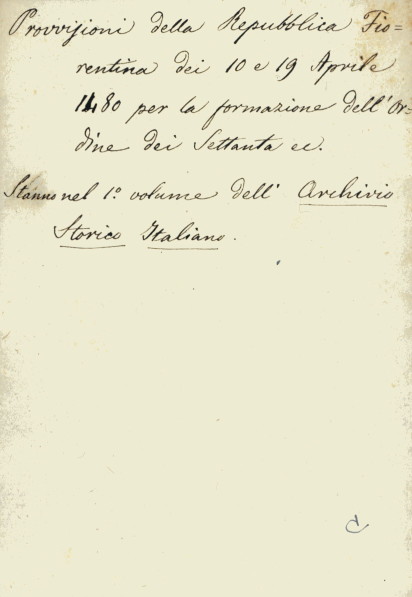 Provvisioni della Repubblica Fio-
rentina dei 10 e 19 Aprile
1480 per la formazione dell'Or-
dine dei Settanta ec.
Stanno nel 1.o volume dell' Archivio
Storico Italiano.